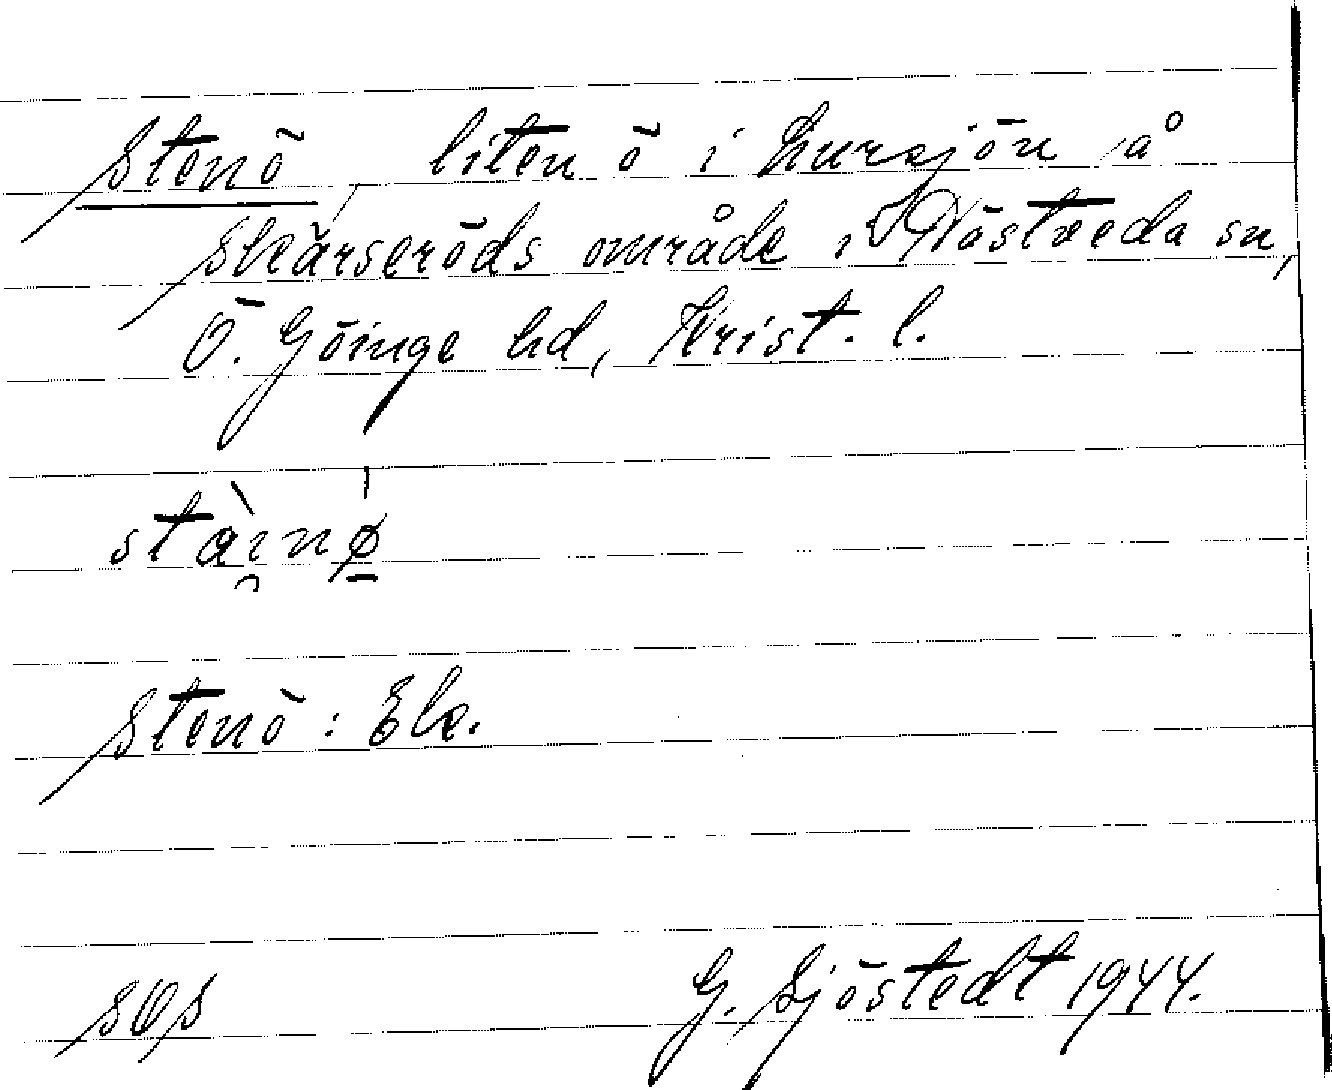 Stenö, liten ö i Lursjön å
Skärseröds område i Hästveda sn,
Ö. Göinge hd, Krist. l.
stàınø̱
Stenö: Ek.
SOS G. Sjöstedt 1944.